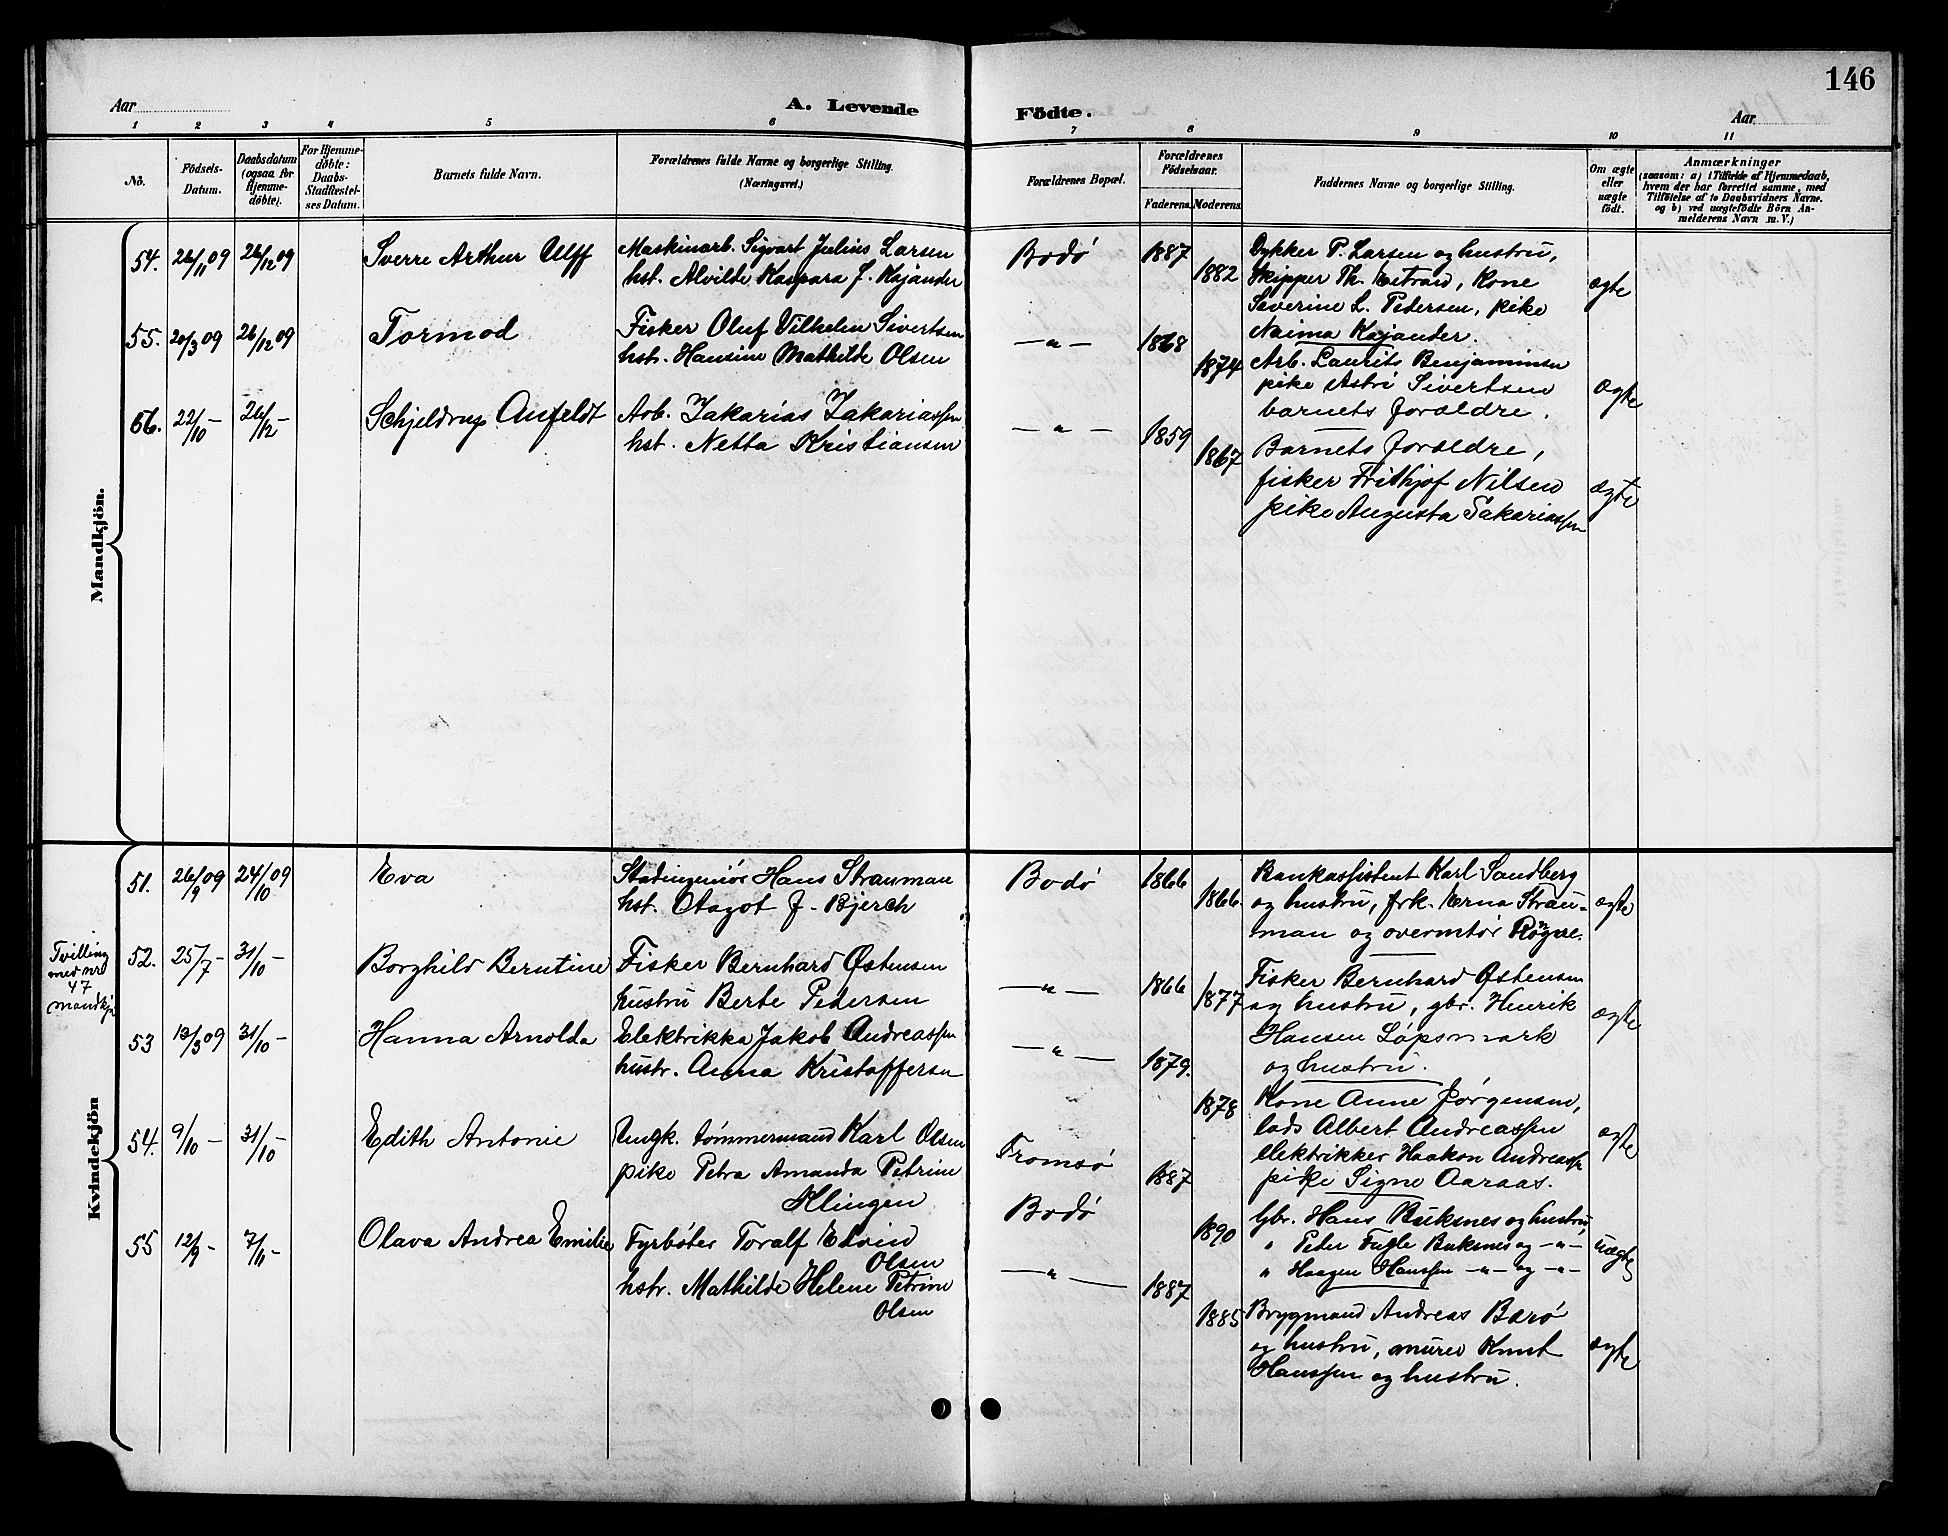 146
Aar
A. Levende
Födte.
Aar
1 2 3 4 5 6 7 8 9 10 11
No.
Födsels-Datum.
Daabsdatum (ogsaa for Hjemme-døbte).
For Hjemme-døbte: Daabs-Stadfæstel-ses Datum.
Barnets fulde Navn.
Forældrenes fulde Navne og borgerlige Stilling. (Næringsvei.)
Forældrenes Bopæl.
Forældrenes Födselsaar.
Faderens. Moderens.
Faddernes Navne og borgerlige Stilling.
Om ægte eller uægte födt.
Anmærkninger
(saasom: a) i Tilfælde af Hjemmedaab, hvem der har forrettet samme, med Tilföielse af to Daabsvidners Navne. og b) ved uægtefödte Börn An-melderens Navn m. V.)
Mandkjön.
54. 26/11 09 26/12 09 Sverre Arthur Ulff
Maskinarb. Sigvart Julius Larsen
hst. Alvilde Kaspara f. Kajander
Bodø 1887 1882
Dykker P. Larsen og hustru,
Skipper Th. kone
Severine L. Pedersen, pike
Naima Kajander.
ægte
55. 20/3 09 26/12 09 Tormod
Fisker Oluf Vilhelm Sivertsen
hst. Hansine Mathilde Olsen
—"— 1868 1874
Arb. Laurits Benjaminsen
pike Astri Sivertsen
barnets forældre.
ægte
56. 22/10 - 26/12 - Schjeldrup Anfeldt
Arb. Zakarias Zakariassen
hst. Netta Kristiansen
—"— 1859 1867
Barnets forældre,
fisker Frithjof Nilsen
pike Augusta Sakariassen
ægte
Kvindekjön
51. 26/9 09 24/10 09 Eva
Stadingeniør Hans Strauman
hst. Aagot f. Bjerch
Bodø 1866 1866.
Bankassistent Karl Sandberg
og hustru, frk. Erna Strau-
man og overmtør
ægte
Tvilling
med nr
47
mandkjø
52. 25/7 - 31/10 - Borghild Berntine
Fisker Bernhard Østensen
hustru Berte Pedersen
—"— 1866 1877
Fisker Bernhard Østensen
og hustru, gbr. Henrik
Hansen Løpsmark
og hustru.
ægte
53 13/3 09 31/10 - Hanna Arnolda
Elektrikka Jakob Andreassen
hustr. Anna Kristoffersen
—"— 1879. 1878
Kone Anne Jørgensen,
lods Albert Andreassen
elektrikker Haakon Andreass
pike Signe Aaraas.
ægte
54. 9/10 - 31/10 - Edith Antonie
Ungk. tømmermand Karl Olsen
pike Petra Amanda Petrine
Klingen
Tromsø
Bodø
1887 1890
Gbr. Hans Buksnes og hustru,
" Peder Fugle Buksnes og —"—
" Haagen Hanssen —"— og —"—
uægte
55 12/9 - 7/11 - Olava Andrea Emilie
Fyrbøter Toralf Edvin
Olsen
hstr. Mathilde Helene Petrine
Olsen
—"— 1887 1885
Brygmand Andreas Barø
og hustru, murer Knut
Hanssen og hustru.
ægte